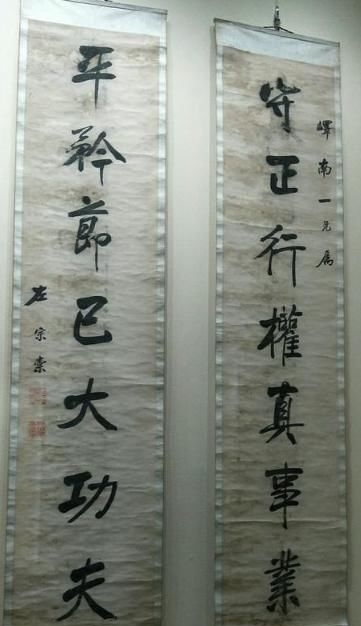 嶧南一兄属
守正行權真事業
平矜節己大功夫
左宗棠